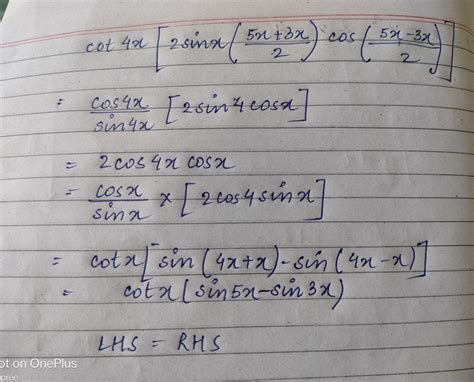 cot 4x [2 sin x (5x+3x/2) cos (5x-3x/2)]
= cos4x/sin4x [2sin4cosx]
= 2cos4x cosx
= cosx/sinx × [2cos4sinx]
= cotx[sin(4x+x)-sin(4x-x)]
= cotx(sin5x-sin3x)
LHS = RHS
ot on OnePlus